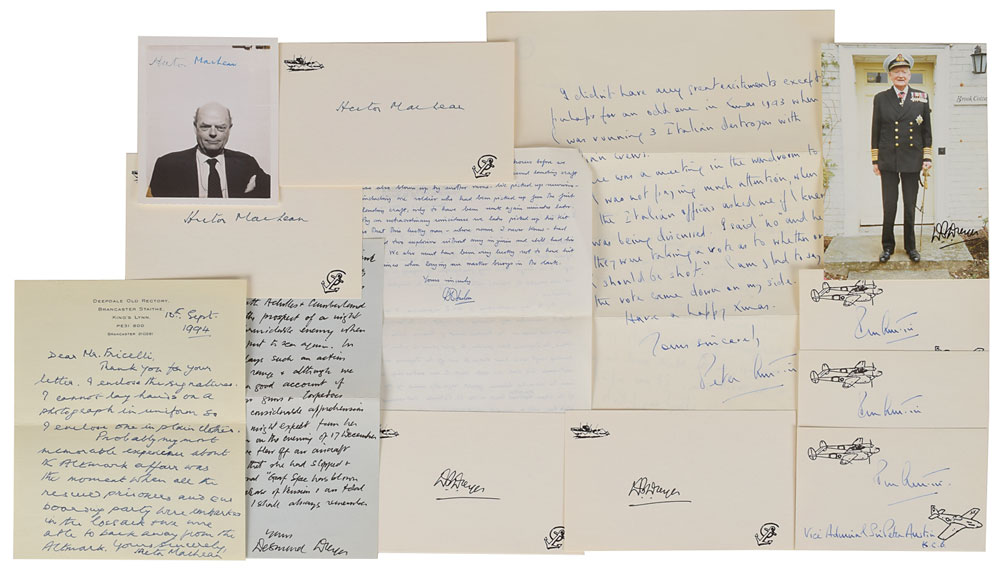 Hector Maclean
Hector Maclean
Hector Maclean
DEEPDALE OLD RECTORY,
BRANCASTER STAITHE,
KING'S LYNN,
PE31 8DD
BRANCASTER
15th Sept.
1994
Dear Mr. Fricelli,
Thank you for your
letter. I enclose the signatures.
I cannot lay hands on a
photograph in uniform so
I enclose one in plain clothes.
Probably my most
memorable experience about
the Altmark affair was
the moment when all the
rescued prisoners and our
boarding party were embarked
in the Cossack & we were
able to back away from the
Altmark. Yours sincerely,
Hector Maclean
with Achilles & Cumberland
the prospect of a night
formidable enemy when
to scan again. In
such an action
range & although we
good account of
guns & torpedoes
considerable apprehension
might expect from her
on the evening of 17 December
flew off an aircraft
that she had slipped &
"Graf Spee has blown
I shall always remember
Yours
Desmond Dreyer
hours before we
landing craft
also blown up by another mine. We picked up survivors
including one soldier who had been picked up from the first
landing craft, only to have been sunk again minutes later.
when laying our marker buoys in the dark.
Yours sincerely
I didn't have any great excitements except
perhaps for an odd one in Xmas 1943 when
I was running 3 Italian destroyers with
crews.
There was a meeting in the wardroom to
I was not paying much attention, when
the Italian officers asked me if I knew
was being discussed. I said "no" and he
they were taking a vote as to whether or
I should be shot." I am glad to say
the vote came down on my side.
Have a happy Xmas.
Yours sincerely,
Peter Austin
Brook Cottage
DP Dreyer
DP Dreyer
DP Dreyer
Peter Austin
Peter Austin
Peter Austin
Vice Admiral Sir Peter Austin
K.C.B.